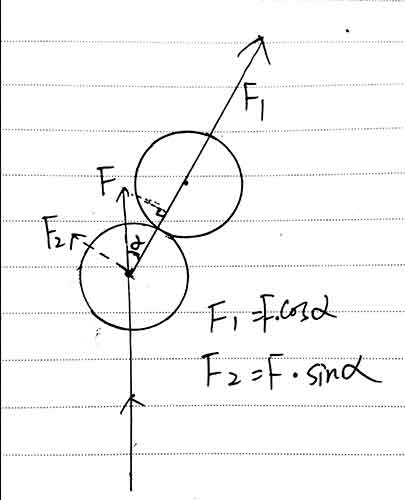 F₁
F
F₂
α
F₁=F.cosα
F₂=F·sinα